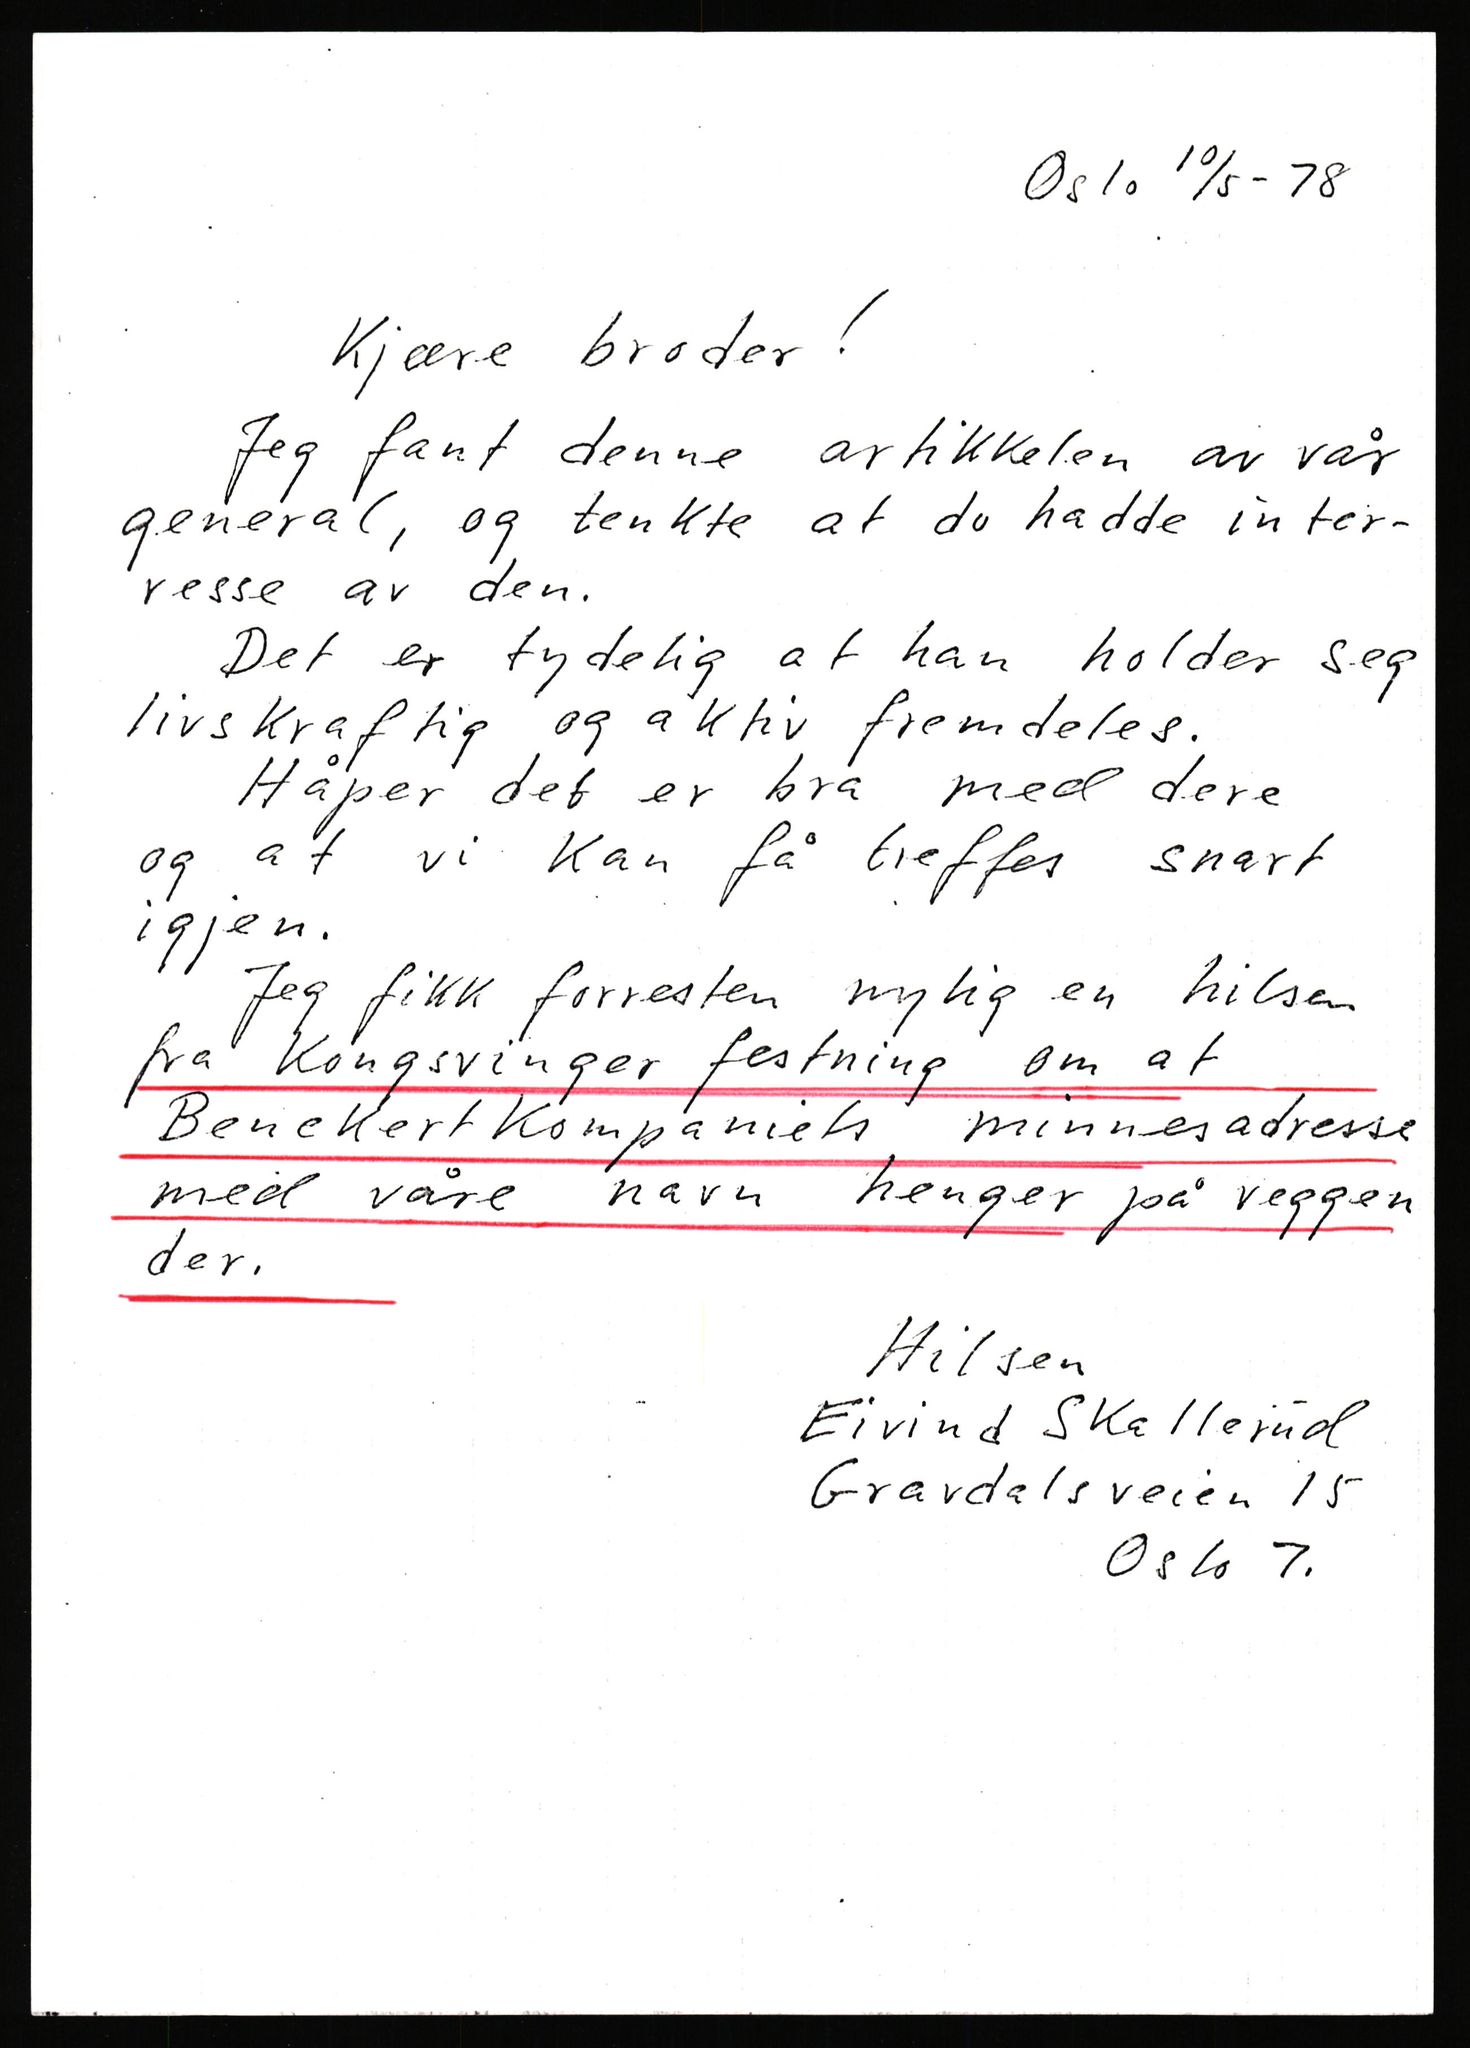 Oslo 10/5-78
Kjære broder!
Jeg fant denne artikkelen av vår
general, og tenkte at du hadde inter-
resse av den.
Det er tydelig at han holder seg
livskraftig og aktiv fremdeles.
Håper det er bra med dere
og at vi kan få treffes snart
igjen.
Jeg fikk forresten nylig en hilsen
fra Kongsvinger festning om at
Benckertkompaniets minnesadresse
med våre navn henger på veggen
der.
Hilsen
Eivind Skallerud
Gravdalsveien 15
Oslo 7.